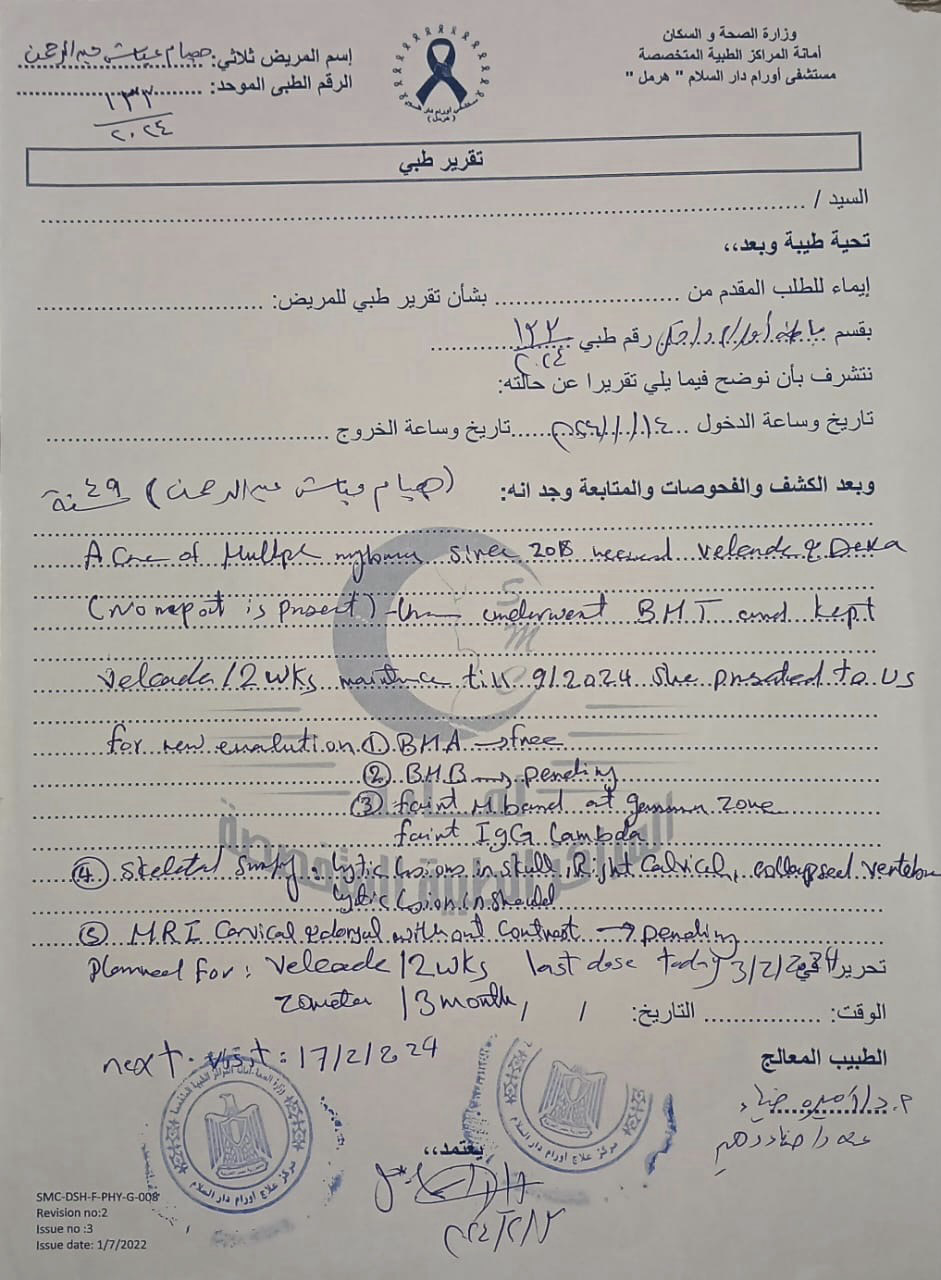 وزارة الصحة و السكان
أمانة المراكز الطبية المتخصصة
مستشفى أورام دار السلام " هرمل "
إسم المريض ثلاثي: عبد الرحمن
الرقم الطبى الموحد:
١٣٣
٢٠٢٤
تقرير طبي
السيد /
تحية طيبة وبعد،،
إيماء للطلب المقدم من بشأن تقرير طبي للمريض:
بقسم رقم طبي ١٣٣
٢٠٢٤
نتشرف بأن نوضح فيما يلي تقريرا عن حالته:
تاريخ وساعة الدخول تاريخ وساعة الخروج
وبعد الكشف والفحوصات والمتابعة وجد انه: (هيام عبد الرحمن) ٤٩ سنة
A Case of Multiple myeloma since 2018 received Velcade & Dexa
(No report is present) underwent BMT and kept
Velcade /2wks maintnce till 9/2024 She presented to us
for new evaluation ① BMA → free
② BMB → pending
③ faint M band at gamma zone
faint IgG Lambda
④ Skeletal : lytic lesions in skull, Right collapsed
lytic lesion in
⑤ MRI Cervical & dorsal without contrast → pending
Planned for: Velcade /2wks last dose today 3/2/ تحرير في
/3 month, / / التاريخ: الوقت:
next visit: 17/2/2024
الطبيب المعالج
يعتمد،،
SMC-DSH-F-PHY-G-008
Revision no:2
Issue no :3
Issue date: 1/7/2022